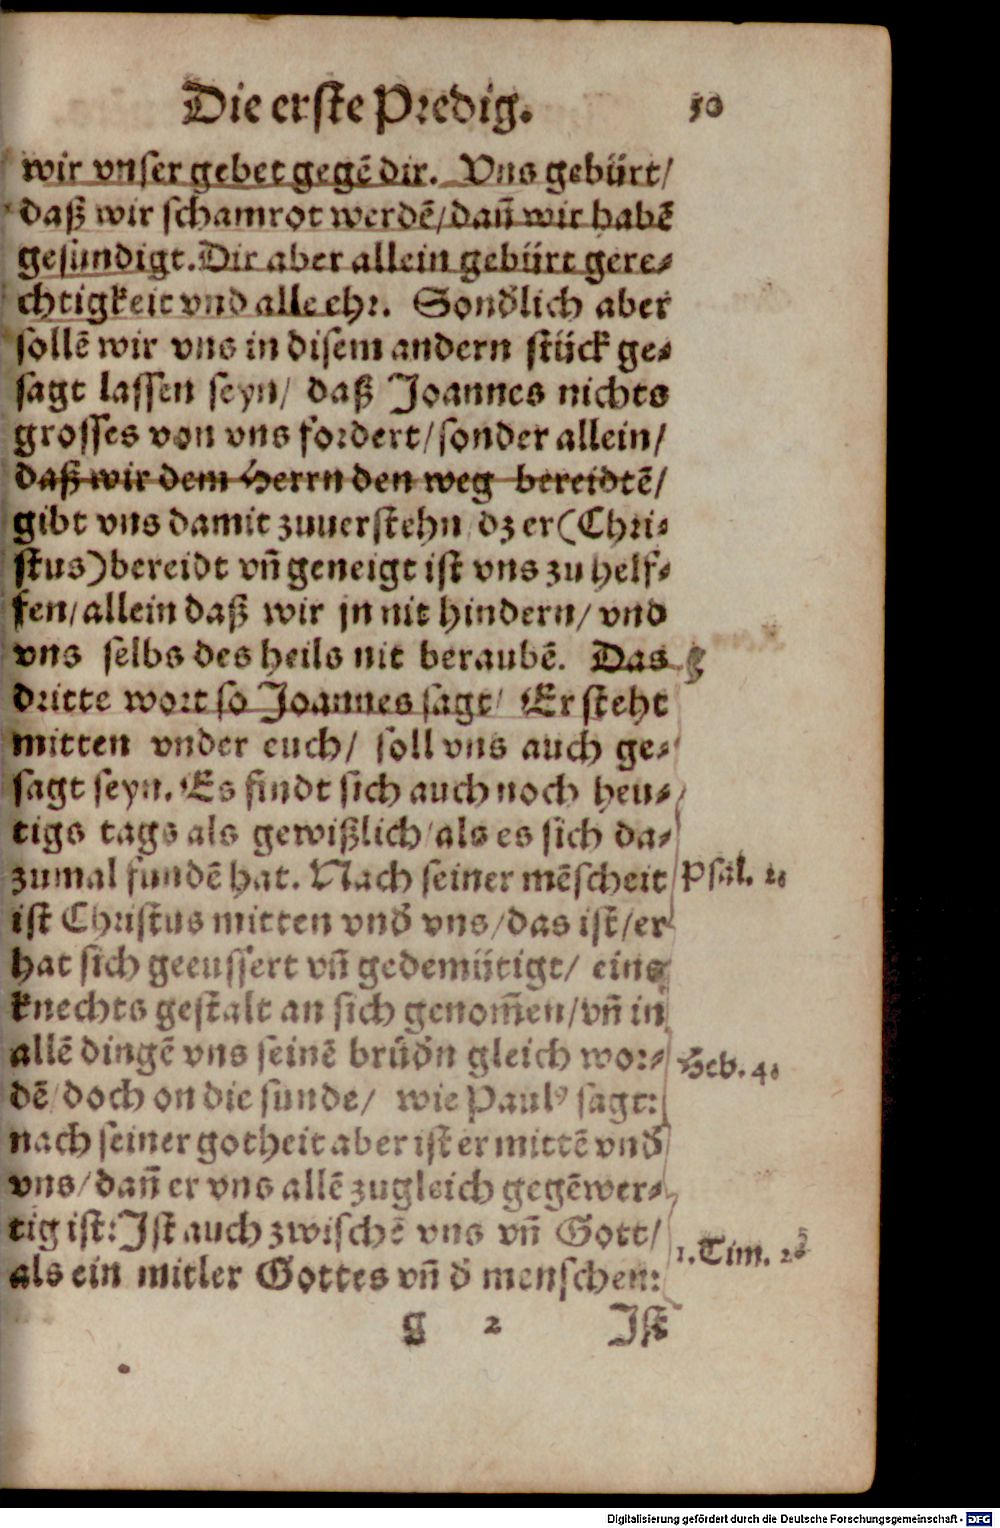 Die erste Predig. 50
wir vnser gebet gegẽ dir. Vns gebürt/
daß wir schamrot werdẽ/dañ wir habẽ
gesündigt.Dir aber allein gebürt gere⸗
chtigkeit vnd alle ehr. Sonđlich aber
sollẽ wir vns in disem andern stück ge⸗
sagt lassen seyn/ daß Joannes nichts
grosses von vns fordert/sonder allein/
daß wir dem Herrn den weg bereidtẽ/
gibt vns damit zuuerstehn dz er(Chri⸗
stus)bereidt vñ geneigt ist vns zu helf⸗
fen/allein daß wir jn nit hindern/ vnd
vns selbs des heils nit beraubẽ. Das
dritte wort so Joannes sagt/ Er steht
mitten vnder euch/ soll vns auch ge⸗
sagt seyn. Es findt sich auch noch heu⸗
tigs tags als gewißlich/als es sich da⸗
zumal fundẽ hat. Nach seiner mẽscheit
Psal. 2.
ist Christus mitten vnđ vns/das ist/er
hat sich geeussert vñ gedemütigt/ eins
knechts gestalt an sich genom̃en/vñ in
allẽ dingẽ vns seinẽ brüđn gleich wor⸗
Heb. 4.
dẽ/doch on die sunde/ wie Paulꝰ sagt:
nach seiner gotheit aber ist er mittẽ vnđ
vns/dañ er vns allẽ zugleich gegẽwer⸗
tig ist: Ist auch zwischẽ vns vñ Gott/
1.Tim. 2
als ein mitler Gottes vñ đ menschen:
g 2 Ist
Digitalisierung gefördert durch die Deutsche Forschungsgemeinschaft - DFG